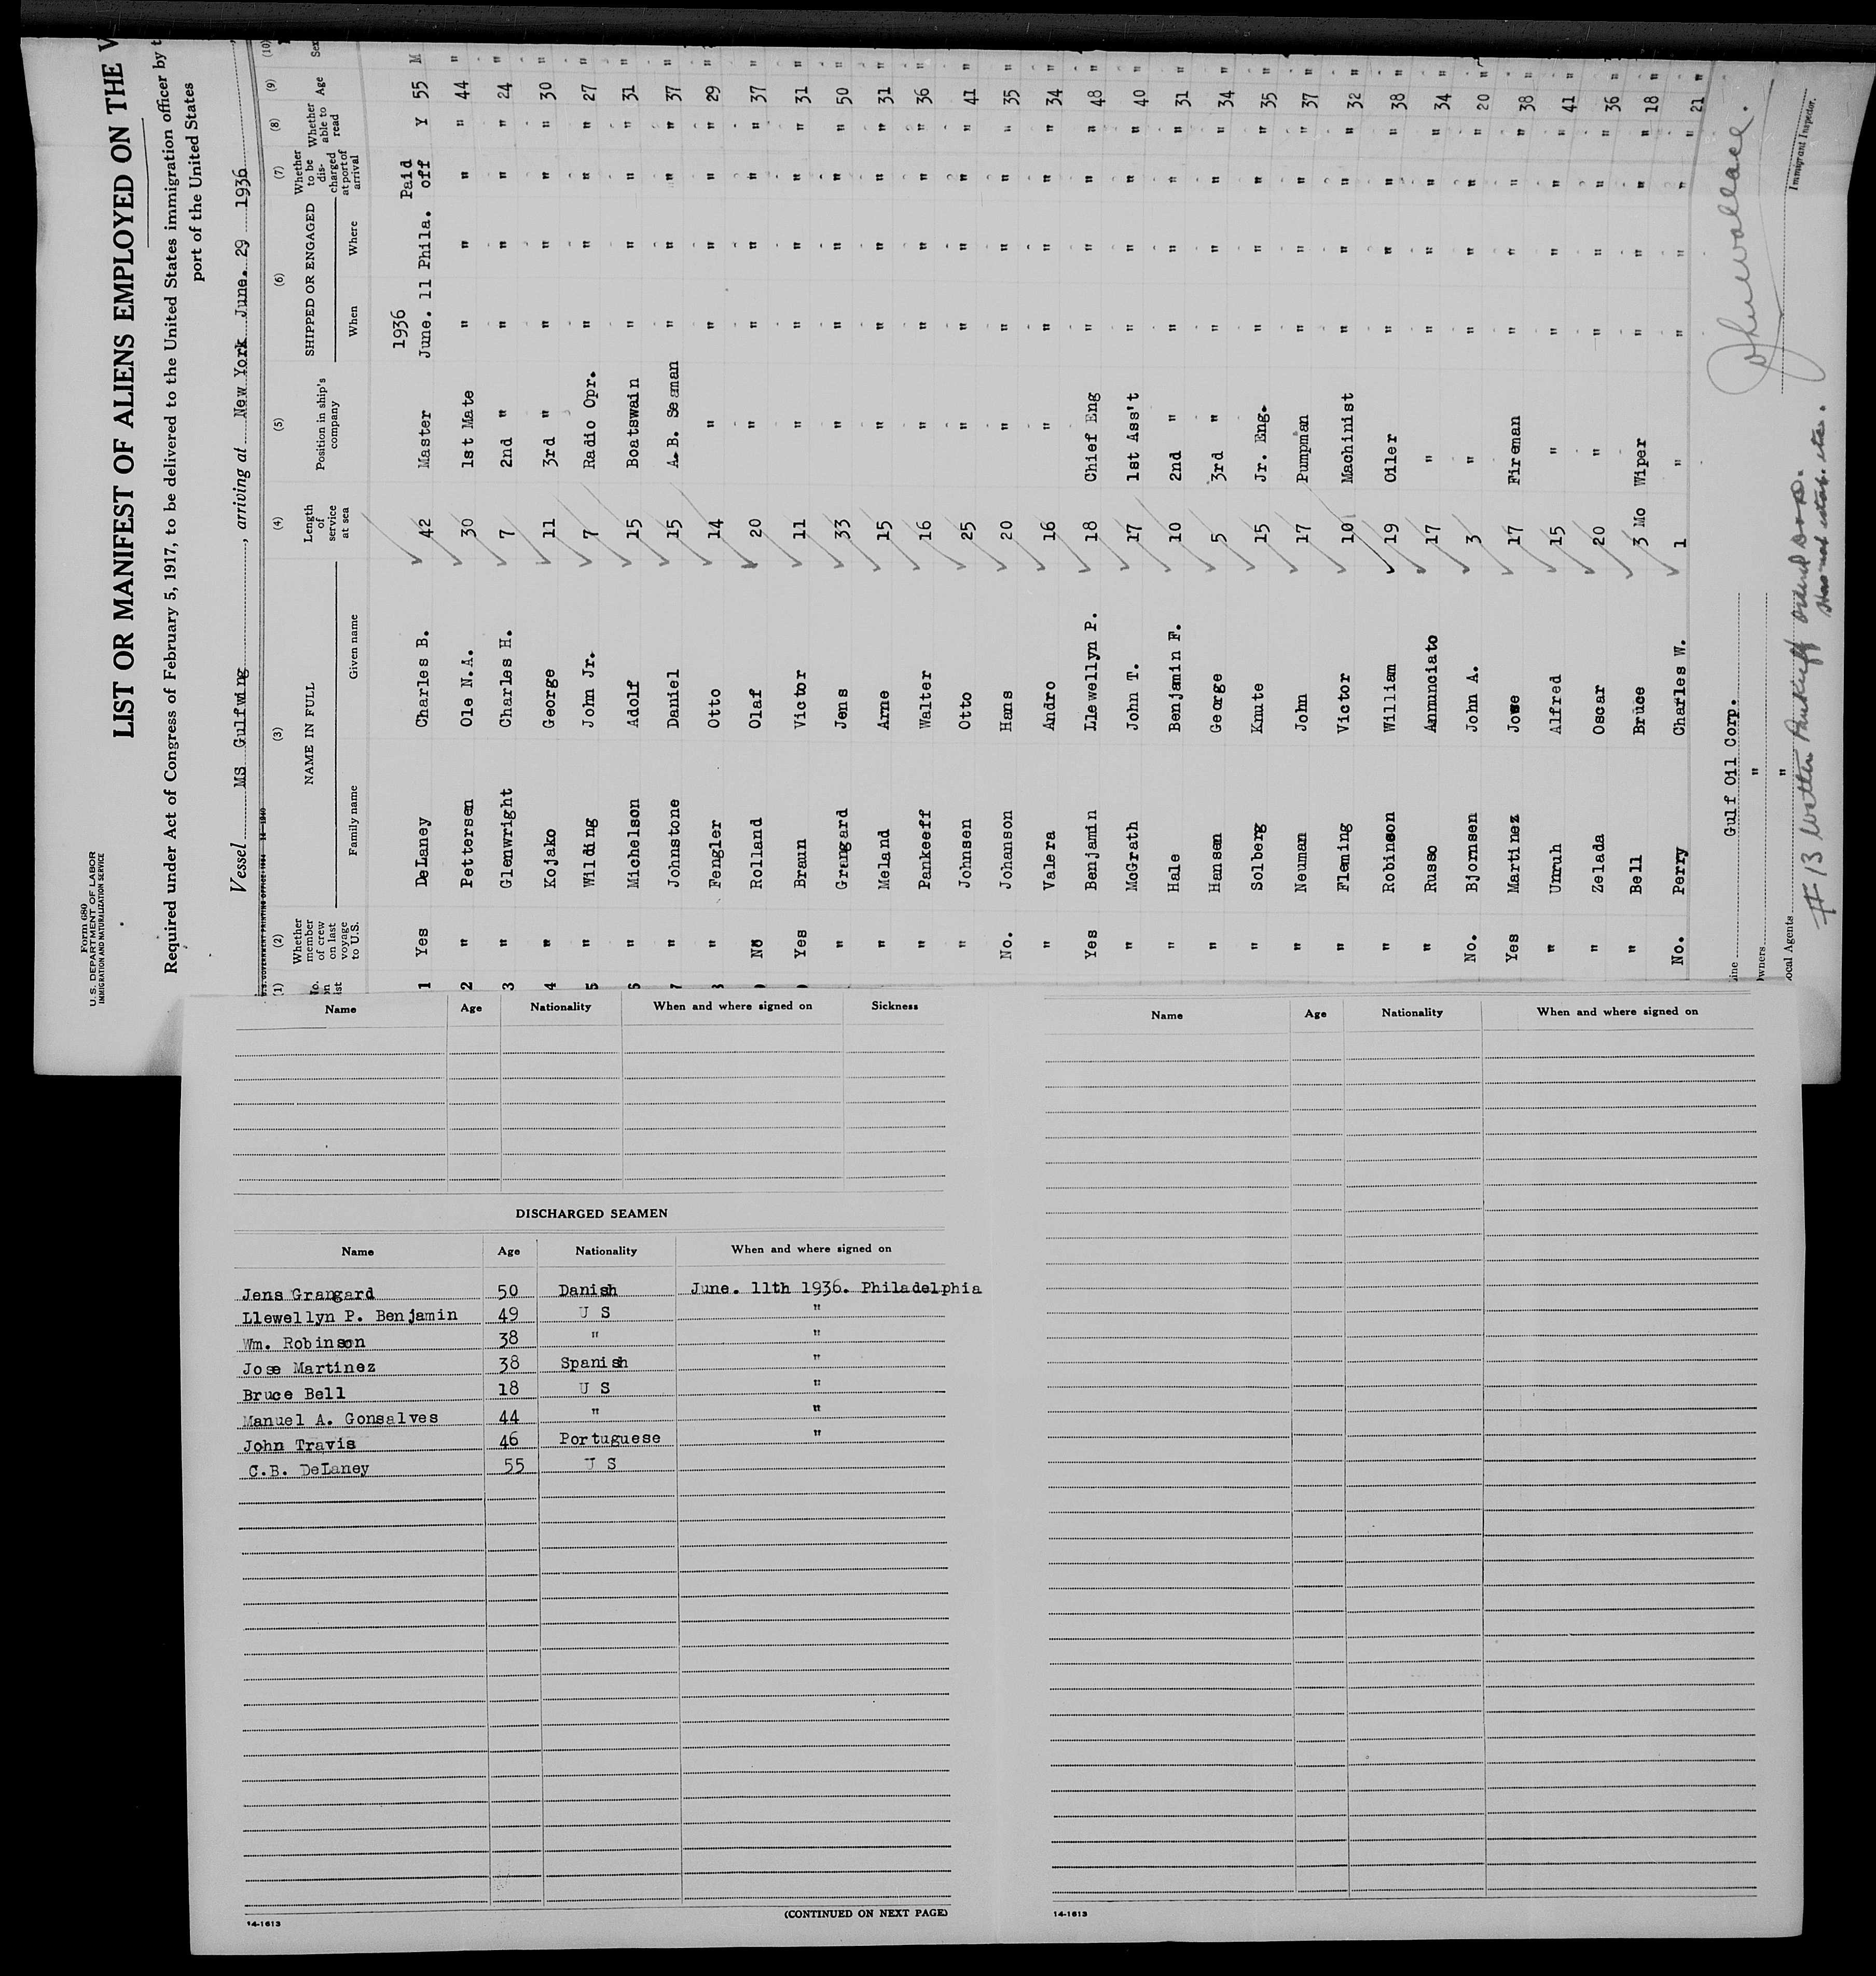 Form 680
U.S. DEPARTMENT OF LABOR
IMMIGRATION AND NATURALIZATION SERVICE
LIST OR MANIFEST OF ALIENS EMPLOYED ON THE V
Required under Act of Congress of February 5, 1917, to be delivered to the United States immigration officer by t
port of the United States
Vessel MS Gulfwing, arriving at New York June. 29 1936
U.S. GOVERNMENT PRINTING OFFICE
(1) (2) (3) (4) (5) (6) (7) (8) (9) (10)
No. on list Whether member of crew on last voyage to U.S. NAME IN FULL Family name Given name Length of service at sea Position in ship's company SHIPPED OR ENGAGED When Where Whether to be discharged at port of arrival Whether able to read Age Sex
1936 Paid
1 Yes DeLaney Charles B. 42 Master June. 11 Phila. off Y 55 M
2 " Pettersen Ole N.A. 30 1st Mate " " " " 44 "
3 " Glenwright Charles H. 7 2nd " " " " " 24 "
4 " Kojako George 11 3rd " " " " " 30 "
5 " Wilding John Jr. 7 Radio Opr. " " " " 27 "
6 " Michelson Adolf 15 Boatswain " " " " 31 "
7 " Johnstone Daniel 15 A.B. Seaman " " " " 37 "
" Fengler Otto 14 " " " " " 29 "
No Rolland Olaf 20 " " " " " 37 "
Yes Braun Victor 11 " " " " " 31 "
" Grangard Jens 33 " " " " " 50 "
" Meland Arne 15 " " " " " 31 "
" Pankeeff Walter 16 " " " " " 36 "
" Johnsen Otto 25 " " " " " 41 "
No. Johanson Hans 20 " " " " " 35 "
" Valera Andro 16 " " " " " 34 "
Yes Benjamin Llewellyn P. 18 Chief Eng " " " " 48 "
" McGrath John T. 17 1st Ass't " " " " 40 "
" Hale Benjamin F. 10 2nd " " " " " 31 "
" Hansen George 5 3rd " " " " " 34 "
" Solberg Knute 15 Jr. Eng. " " " " 35 "
" Neuman John 17 Pumpman " " " " 37 "
" Fleming Victor 10 Machinist " " " " 32 "
" Robinson William 19 Oiler " " " " 38 "
" Russo Annunciato 17 " " " " " 34 "
No. Bjornsen John A. 3 " " " " " 20 "
Yes Martinez Jose 17 Fireman " " " " 38 "
" Unruh Alfred 15 " " " " " 41 "
" Zelada Oscar 20 " " " " " 36 "
" Bell Bruce 3 Mo Wiper " " " " 18 "
No. Perry Charles W. 1 " " " " " 21 "
ine Gulf Oil Corp.
wners "
ocal Agents "
Immigrant Inspector.
# 13 Walter Pankeeff
Name Age Nationality When and where signed on Sickness
DISCHARGED SEAMEN
Name Age Nationality When and where signed on
Jens Grangard 50 Danish June. 11th 1936. Philadelphia
Llewellyn P. Benjamin 49 U S "
Wm. Robinson 38 " "
Jose Martinez 38 Spanish "
Bruce Bell 18 U S "
Manuel A. Gonsalves 44 " "
John Travis 46 Portuguese "
C.B. DeLaney 55 U S
14-1613
(CONTINUED ON NEXT PAGE)
Name Age Nationality When and where signed on
14-1613